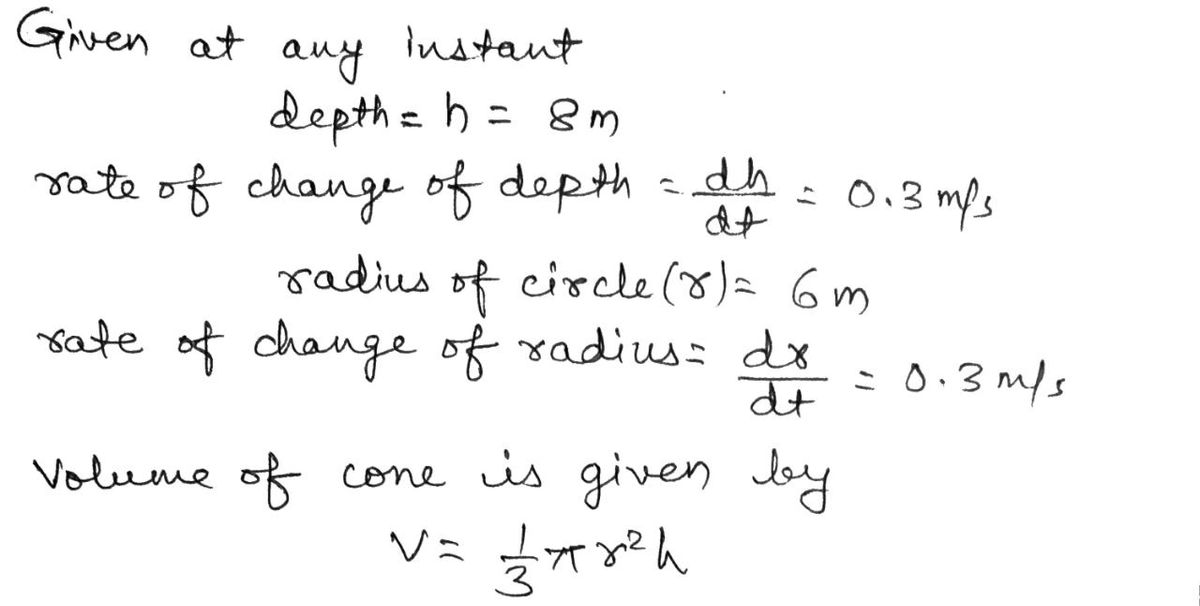 Given at any instant
depth = h = 8m
rate of change of depth = dh/dt = 0.3 m/s
radius of circle (r) = 6m
rate of change of radius = dr/dt = 0.3 m/s
Volume of cone is given by
V = 1/3 πr²h